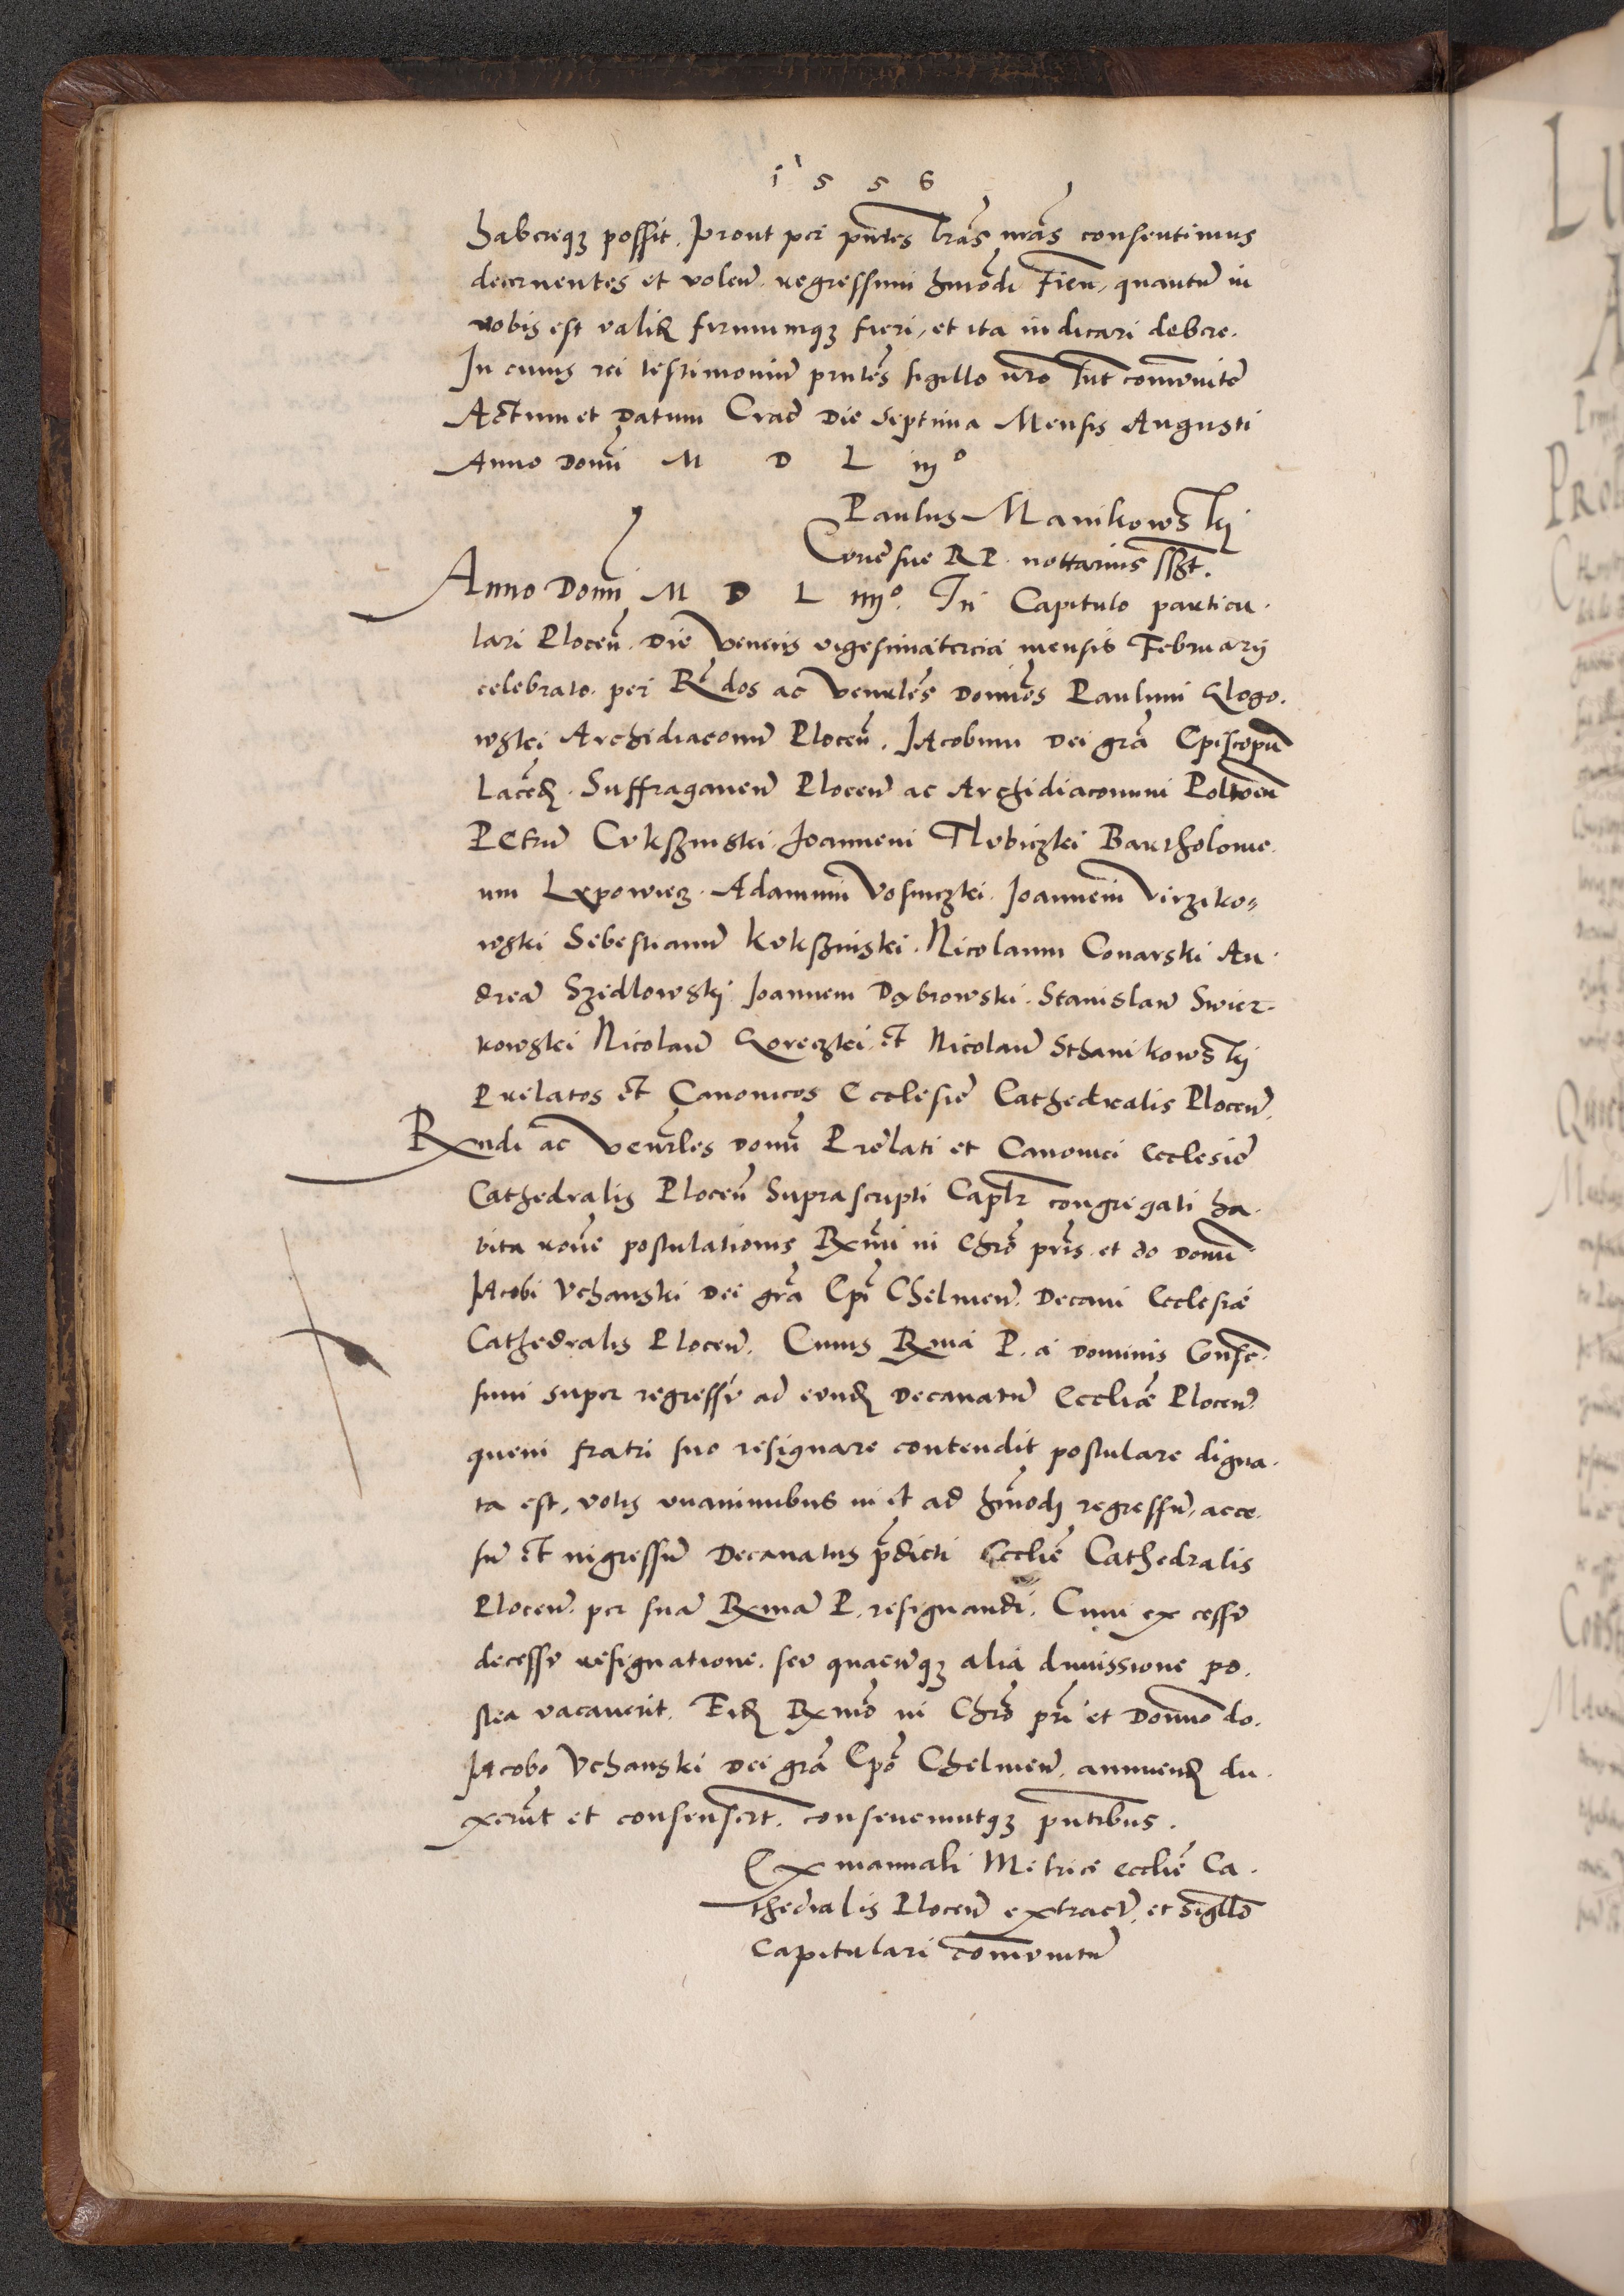 1 5 5 6
habereq3 possit. Prout per pn̄tes lr̄as nr̄as consentimus
decernentes et volen̄. regressum hmōdi Fien̄, quantū in
nobis est valid firmumq3 fieri, et ita indicari debere.
In cuius rei testimoniū pn̄tes sigillo nr̄o sūt comūnite
Actum et Datum Crac̄ Die Septima Mensis Augusti
Anno Domi M D L iijº
Paulus Manikowskij
Curiē sue RP. nottarius sszt.
Anno Domi M D L iiijº. In Capitulo particu.
lari Plocen̄. Die Veneris vigesimatercia mensis Februarij
celebrato. per R̄dos ac Venerles Domīos Paulum Glogo.
wskei Archidiaconū Plocen̄. Jacobum Dei grā Episcopū
Laced. Suffraganeū Plocen̄ ac Archidiaconum Poltoen̄
Petrū Cukssinski. Joannem Hubiczkei Bartholome.
um Lxpowicz. Adamum Vosinczkei. Joannem Virziko=
wski Sebestianū Kukssinski. Nicolaum Conarski An.
dreā Szedlowskij Joannem Dąbrowski. Stanislaū Swier.
kowskei Nicolaū Goreczkei, et Nicolaū Sthanikowskij
Prelatos et Canonicos Ecclesiē Cathedralis Plocen̄.
Rxndi ac Venerles Domī Prēlati et Canonici Ecclesiē
Cathedralis Plocen̄ Suprascripti Captr congregati ha.
bita rōne postulationis Rxmi in Chrō pr̄is et do Domī
Jacobi Vchanski Dei grā Ep̄i Chelmen̄. Decani Ecclesiæ
Cathedralis Plocen̄. Cuius Rxma P. a Dominis Conse.
sum super regressu ad eund Decanatū Eccliæ Plocen̄
quem fratri suo resignare contendit postulare digna.
ta est, votis vnanimibus in et ad hmōdi regressū, acce.
sū et ingressū Decanatus p̄dicti Eccliē Cathedralis
Plocen̄. per suā Rxmā P. resignandi. Cum ex cessu
decessu resignatione. seu quacūq3 alia dimissione po.
stea vacauerit. Eid Rxmō in Chrō pr̄i et Domīo do.
Jacobo Vchanski Dei grā Ep̄o Chelmen̄. annuend du.
xerūt et consensert. conseneruntq3 pn̄tibus.
Ex manuali Metrice eccliē Ca.
thedralis Plocen̄ extractū, et sigillō
Capitulari comūnitū